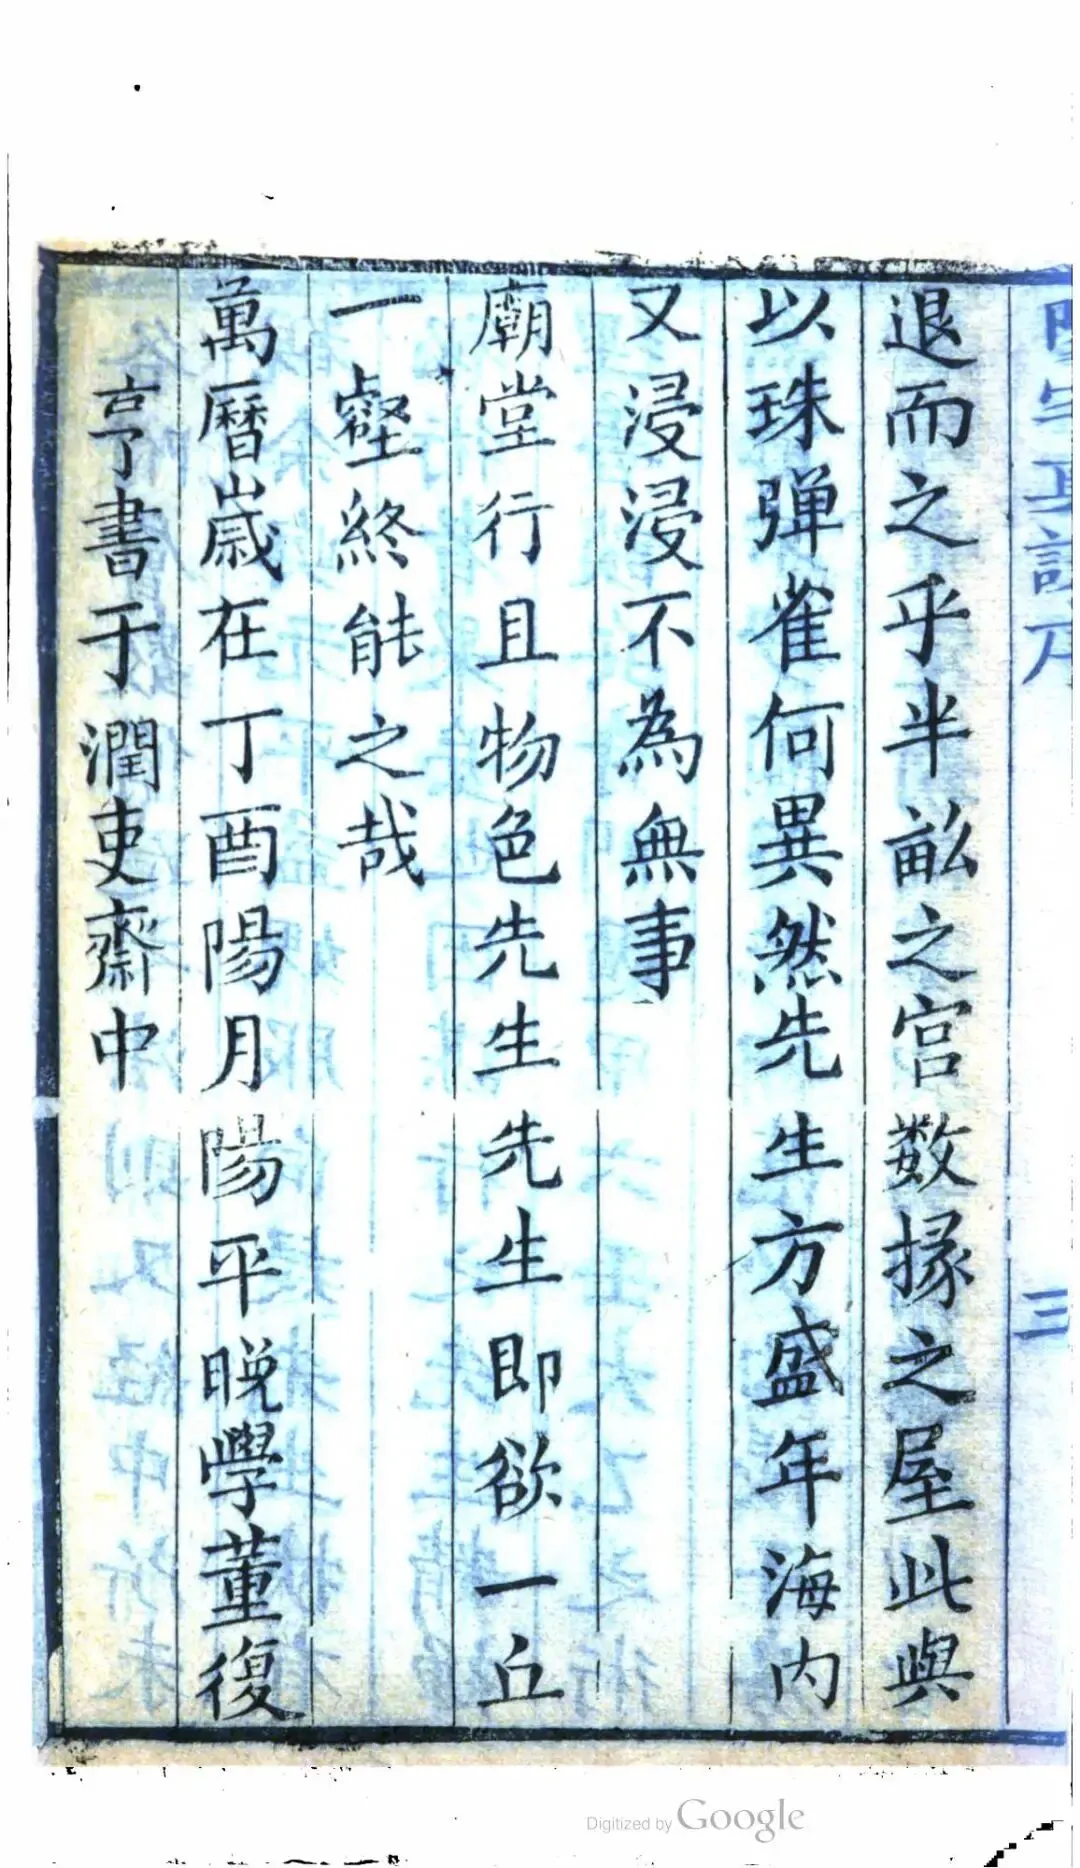 退而之乎半畝之宫数椽之屋此與
以珠弹雀何異然先生方盛年海内
又浸浸不為無事
廟堂行且物色先生先生即欲一丘
一壑終能之哉
萬曆嵗在丁酉陽月陽平晚學董復
亨書于潤吏齋中
三
Digitized by Google